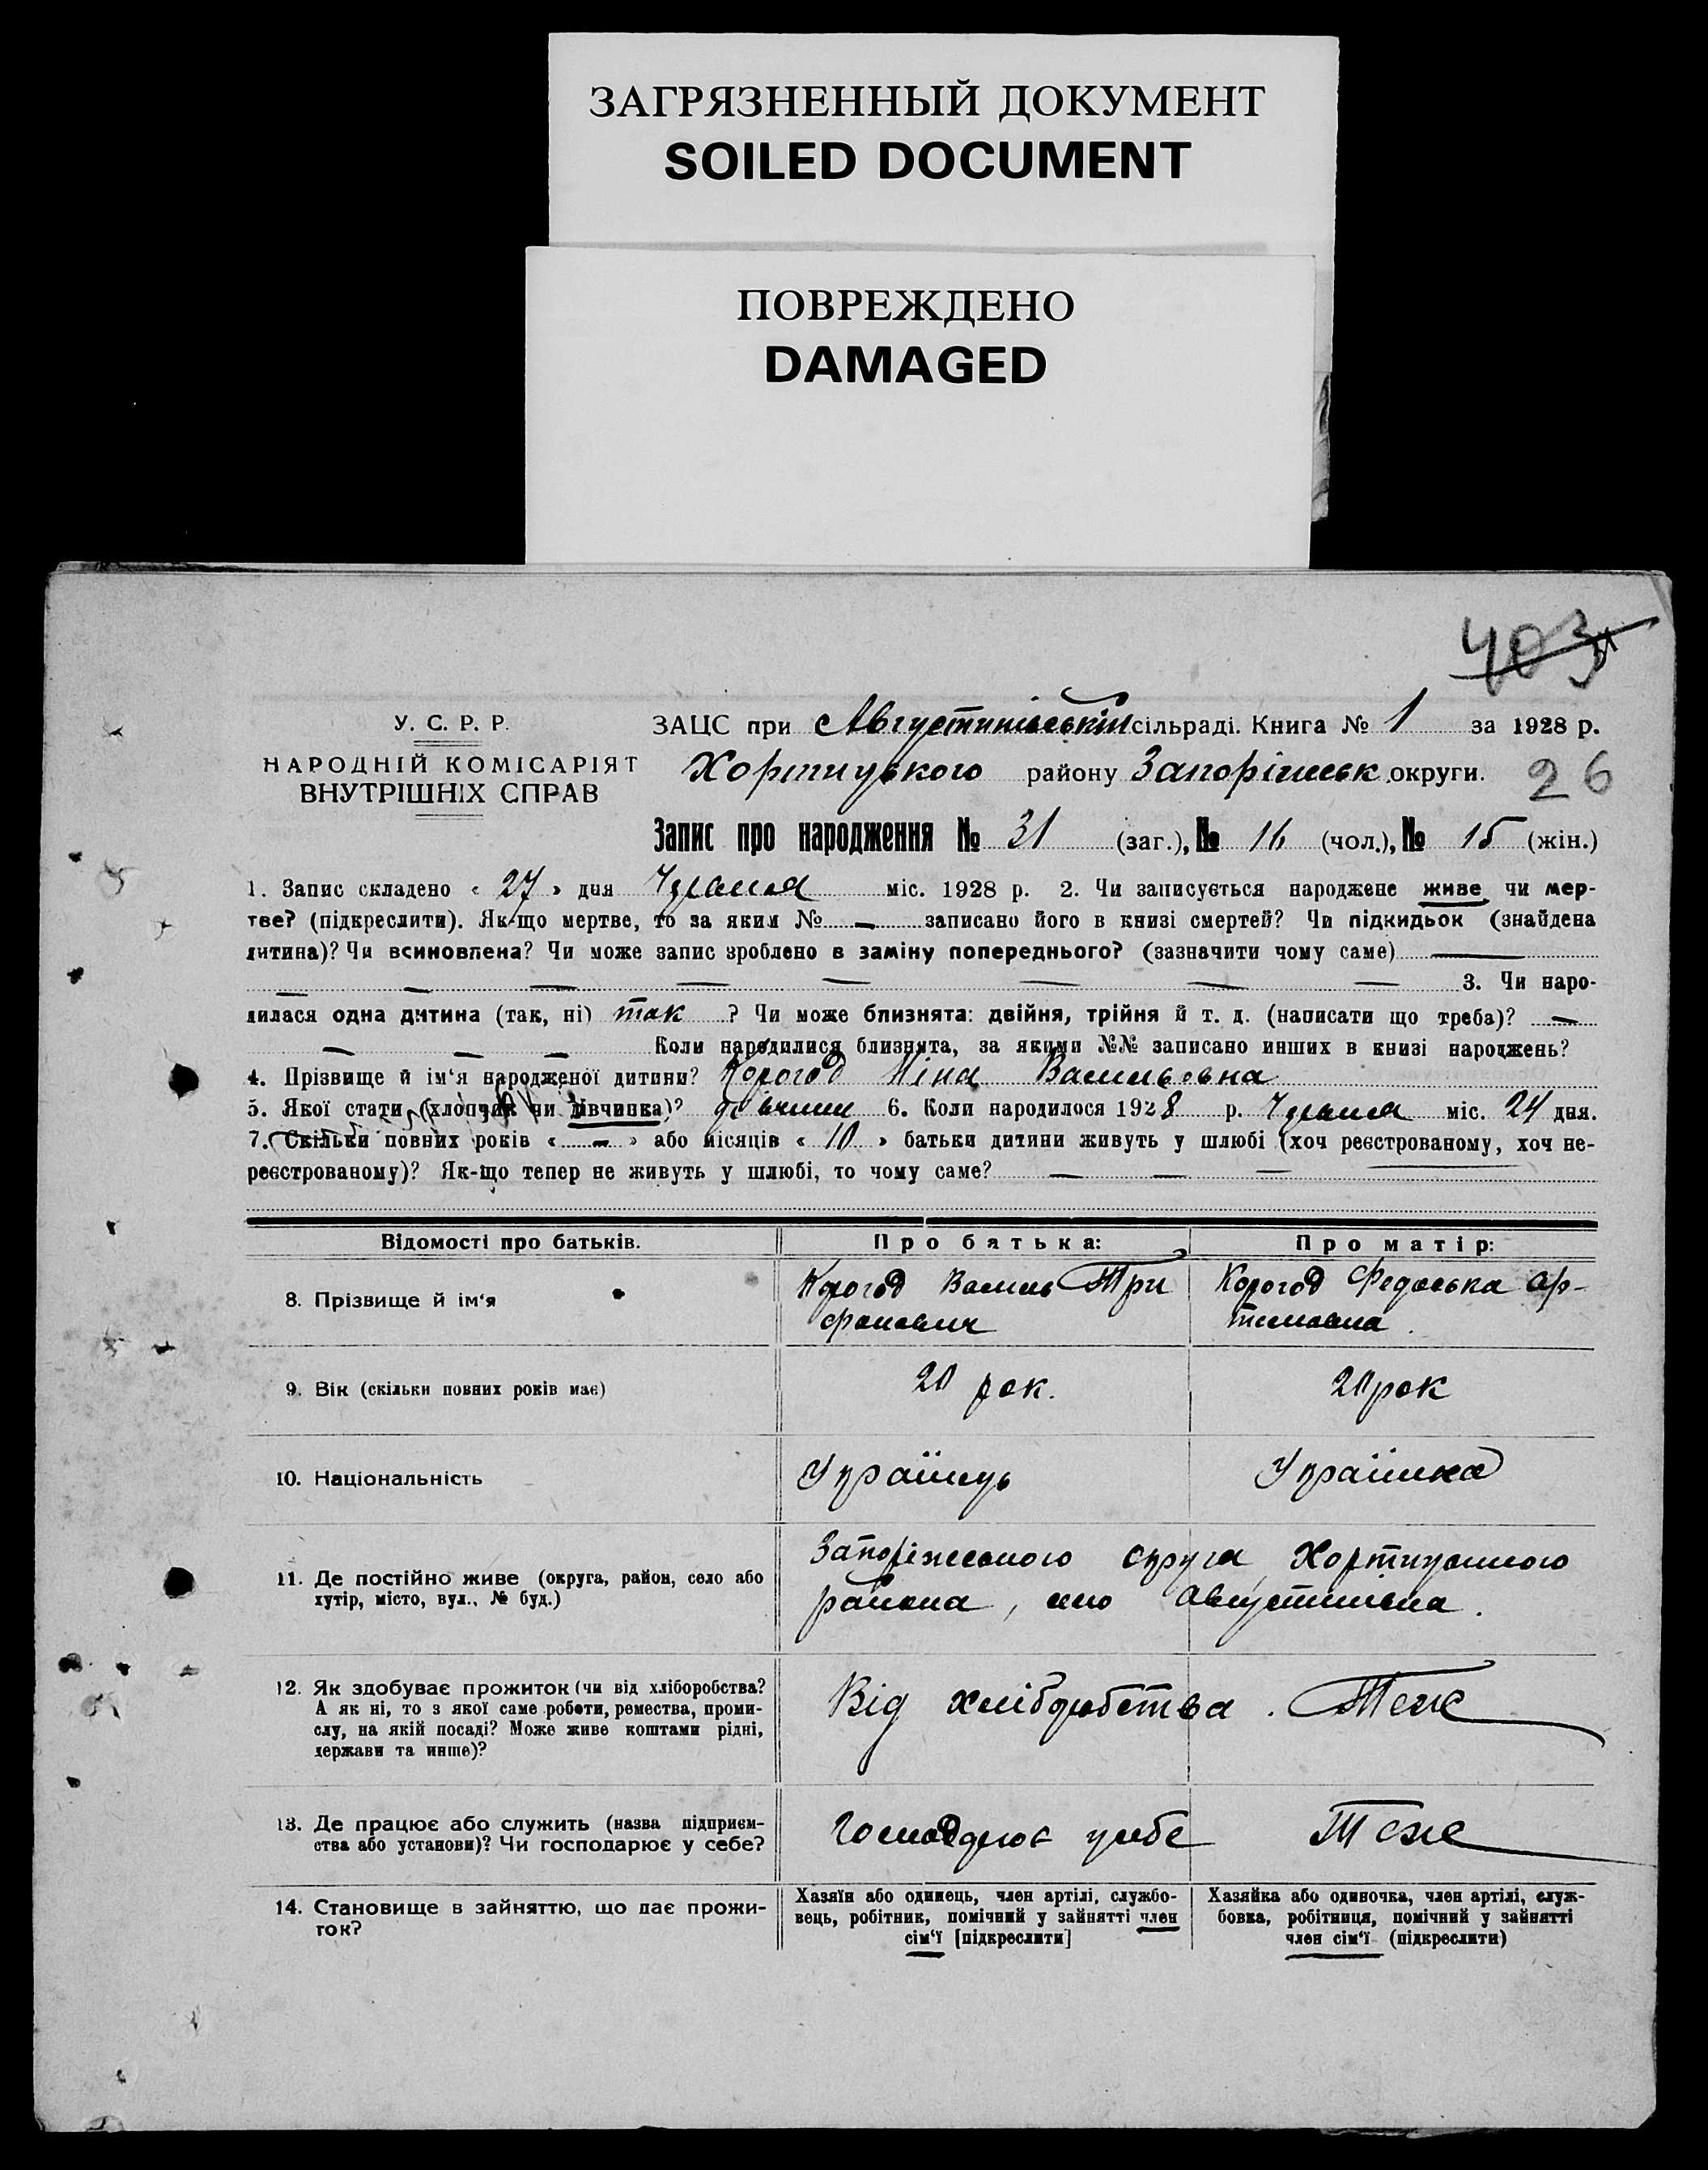 ЗАГРЯЗНЕННЫЙ ДОКУМЕНТ
SOILED DOCUMENT
ПОВРЕЖДЕНО
DAMAGED
403
У. С. Р. Р.
НАРОДНІЙ КОМІСАРІЯТ
ВНУТРІШНІХ СПРАВ
ЗАЦС при Августинівській сільраді. Книга № 1 за 1928 р.
Хортицького району Запоріжськ. округи.
26
Запис про народження № 31 (заг.), № 16 (чол.), № 15 (жін.)
1. Запис складено « 27 » дня міс. 1928 р. 2. Чи записується народжене живе чи мер-
тве? (підкреслити). Як-що мертве, то за яким № — записано його в книзі смертей? Чи підкидьок (знайдена
дитина)? Чи всиновлена? Чи може запис зроблено в заміну попереднього? (зазначити чому саме) —
— — — — — — — — 3. Чи наро-
дилася одна дитина (так, ні) так ? Чи може близнята: двійня, трійня й т. д. (написати що треба)? —
— — — Коли народилися близнята, за якими №№ записано инших в книзі народжень?
4. Прізвище й ім‘я народженої дитини? Корогод Ніна Васильовна
5. Якої стати (хлопчик чи дівчинка)? 6. Коли народилося 1928 р. міс. 24 дня.
7. Скільки повних років « — » або місяців « 10 » батьки дитини живуть у шлюбі (хоч реєстрованому, хоч не-
реєстрованому)? Як-що тепер не живуть у шлюбі, то чому саме? — — — —
Відомості про батьків. Про батька: Про матір:
8. Прізвище й ім‘я
Корогод Василь Три
фанович
Корогод Федоська Ар-
темовна
9. Вік (скільки повних років має) 20 рок. 20 рок
10. Національність Українець Українка
11. Де постійно живе (округа, район, село або
хутір, місто, вул., № буд.)
Запоріжського округа, Хортицького
района, село Августинівка.
12. Як здобуває прожиток (чи від хліборобства?
А як ні, то з якої саме роботи, ремества, проми-
слу, на якій посаді? Може живе коштами рідні,
держави та инше)?
Від хліборобства. Теж
13. Де працює або служить (назва підприєм-
ства або установи)? Чи господарює у себе?
Господарює у себе Теж
14. Становище в зайняттю, що дає прожи-
ток?
Хазяїн або одинець, член артілі, службо-
вець, робітник, помічний у зайнятті член
сім‘ї [підкреслити]
Хазяйка або одиночка, член артілі, служ-
бовка, робітниця, помічний у зайнятті
член сім‘ї (підкреслити)